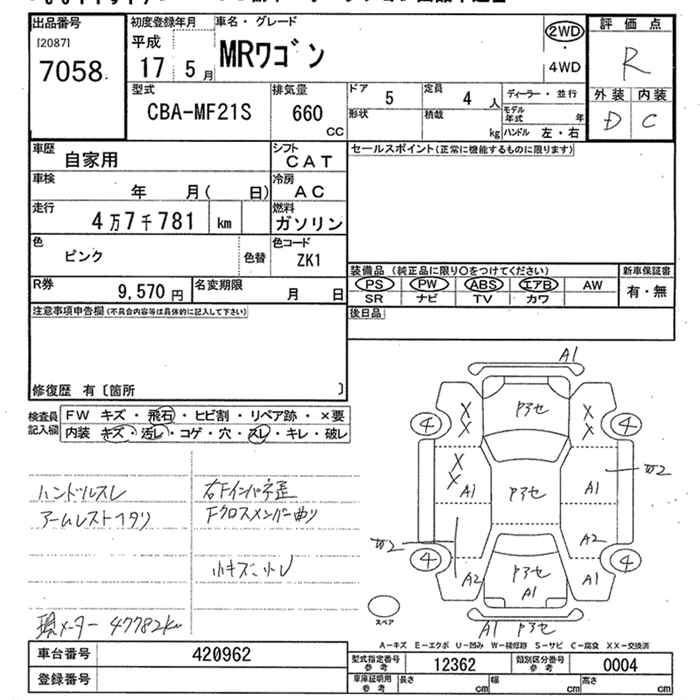 出品番号
[2087]
7058
初度登録年月
平成
17 5 月
車名・グレード
MRワゴン
2WD
・
4WD
評価点
R
外装 内装
D C
型式
CBA-MF21S
排気量
660
CC
ドア
5
定員
4 人
ディーラー・並行
形状
積載
kg
モデル年式 年
ハンドル 左・右
車歴
自家用
シフト
CAT
セールスポイント(正常に機能するものに限ります)
車検
年 月( 日)
冷房
AC
走行
4万7千781 km
燃料
ガソリン
色
ピンク
色替
色コード
ZK1
装備品 (純正品に限り○をつけてください)
PS PW ABS エアB AW
SR ナビ TV カワ
新車保証書
有・無
R券
9,570 円
名変期限
月 日
後日品
注意事項申告欄(不具合内容等は具体的に記入して下さい)
修復歴 有〔箇所 〕
検査員記入欄
FW キズ・飛石・ヒビ割・リペア跡・×要
内装 キズ・汚レ・コゲ・穴・スレ・キレ・破レ
ハンドルスレ
アームレストヘタリ
右Fインパネ歪
Fクロスメンバー曲り
小キズ、小レ
現メーター 47782km
A1
Pアセ
X X
X X
4
4
X X
A1
Pアセ
A1
A2
A2
Pアセ
A1
A1
4
4
スペア
A1 Pアセ
A-キズ E-エクボ U-凹み W-補修跡 S-サビ C-腐食 XX-交換済
車台番号
420962
登録番号
型式指定番号 参考
12362
類別区分番号 参考
0004
車庫証明用 参考
長さ cm
幅 cm
高さ cm